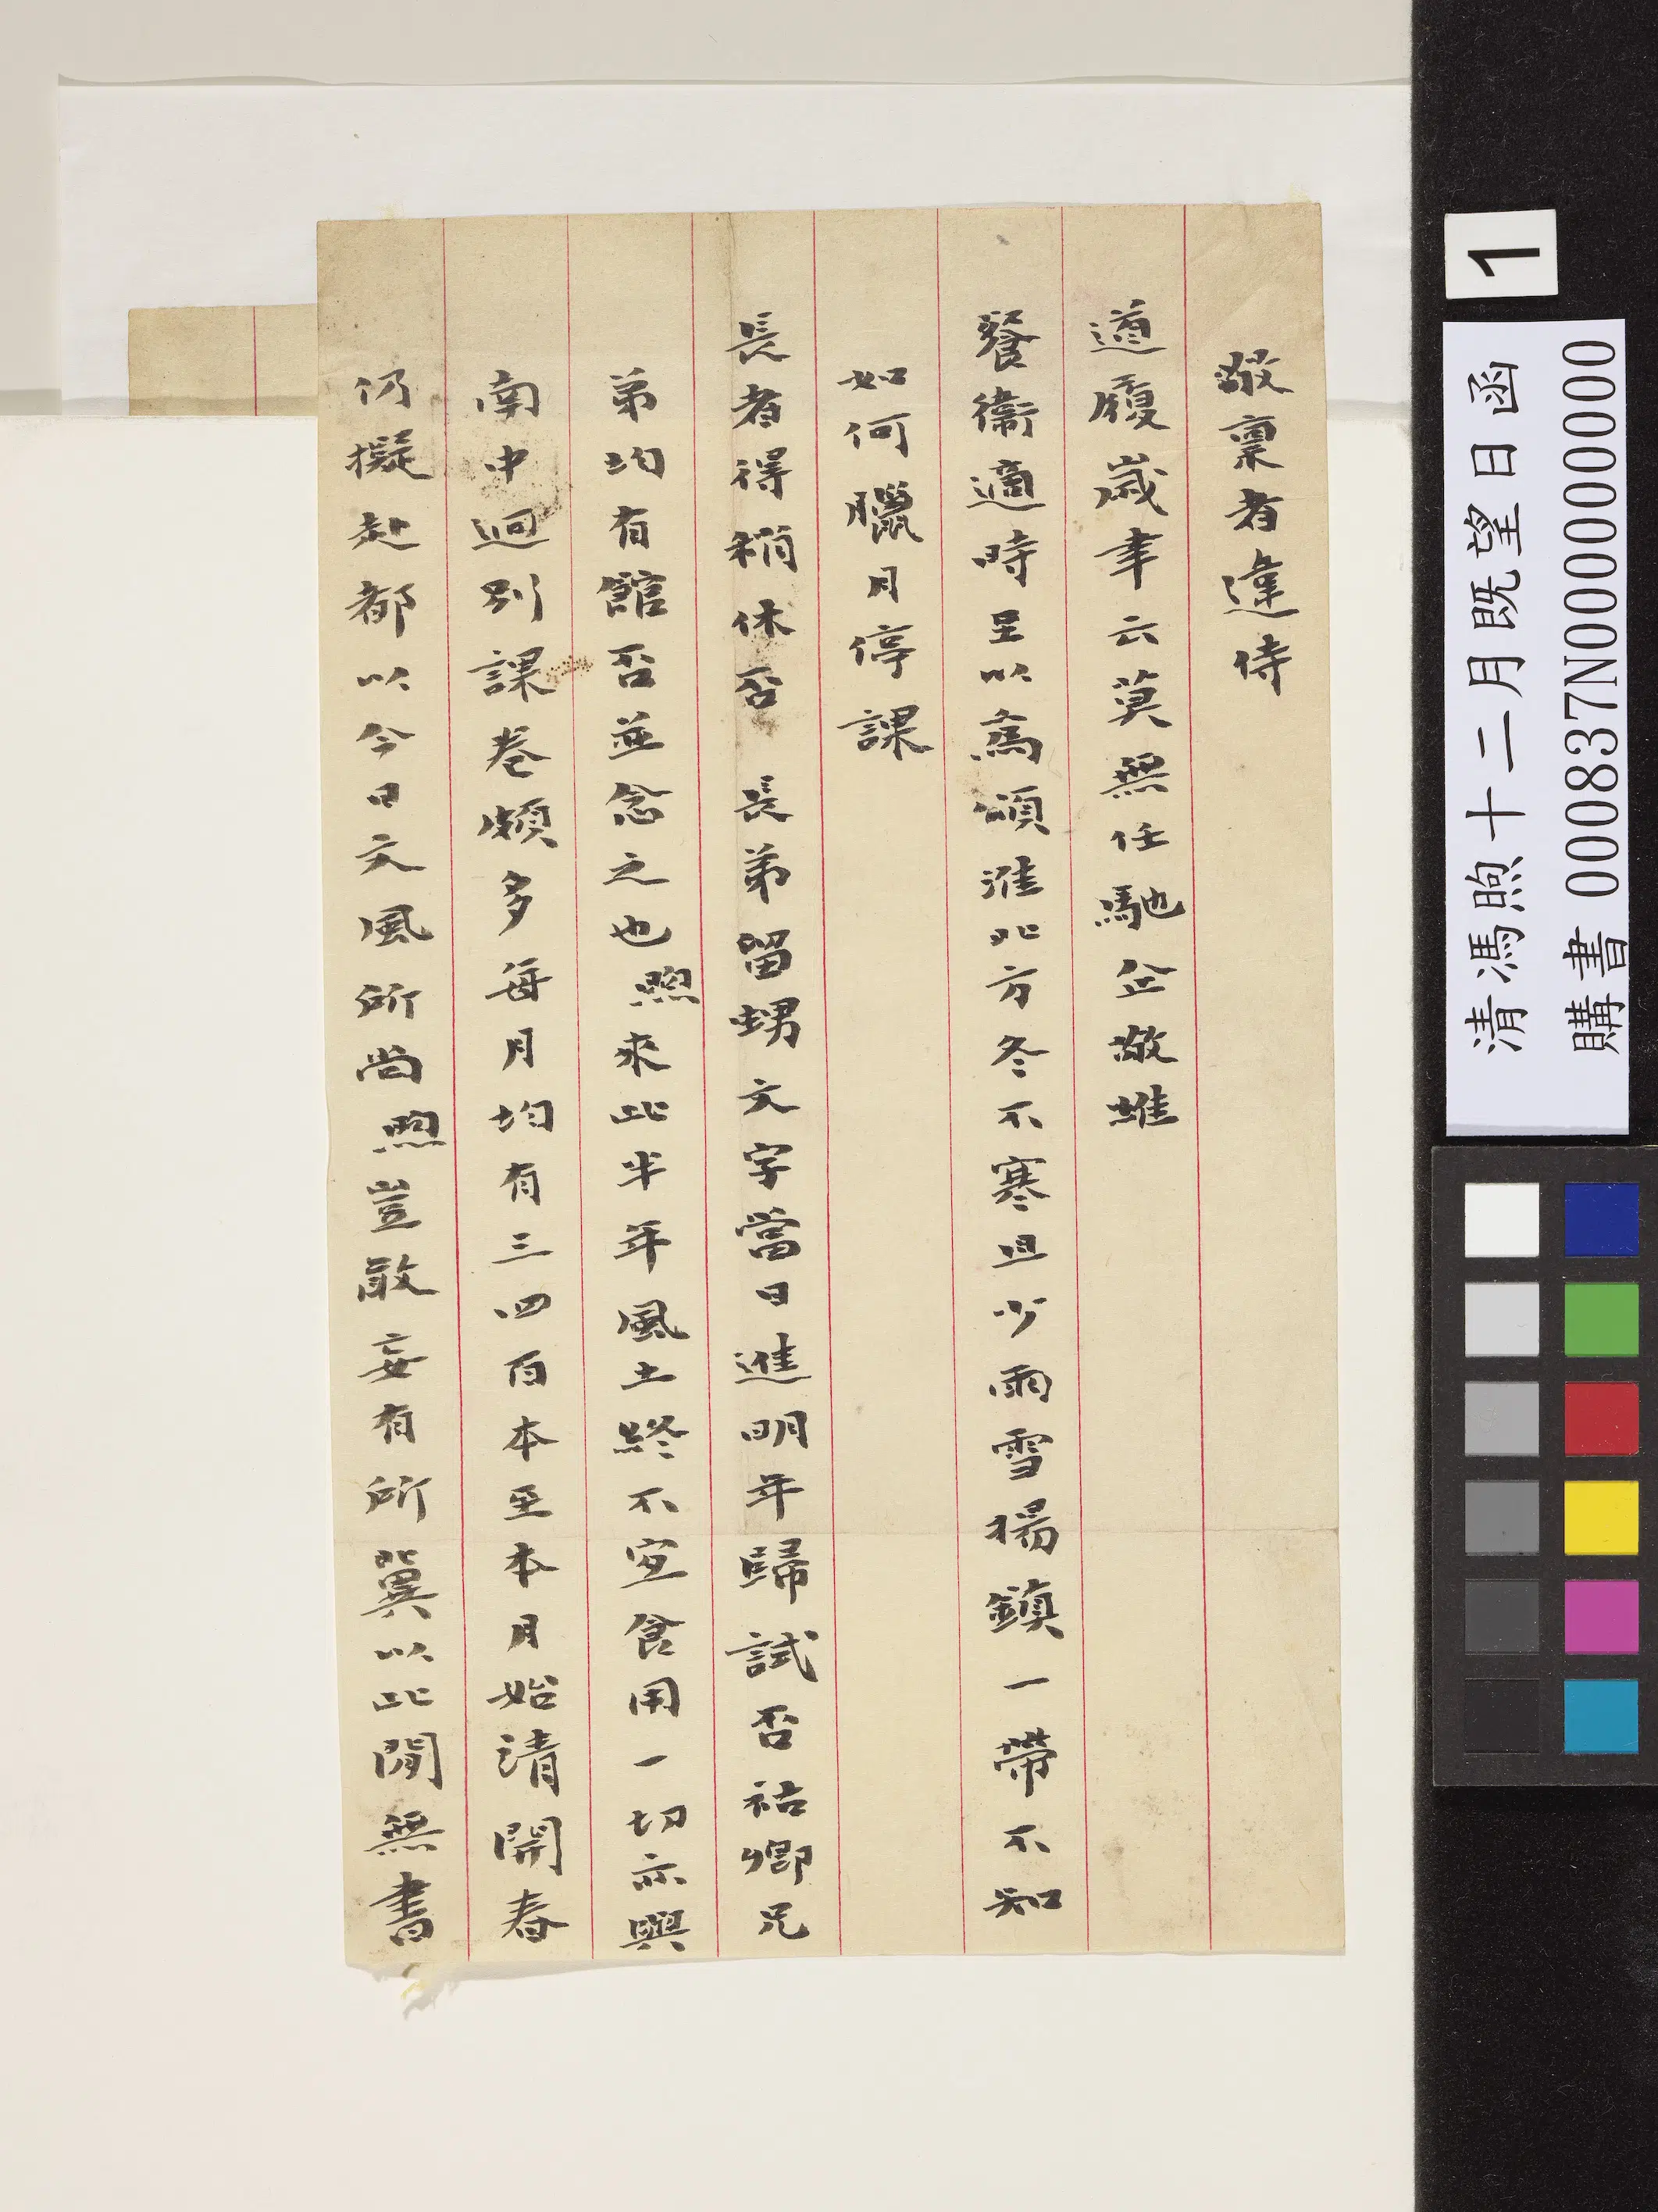 敬稟者違侍
道履歲聿云莫無任馳企敬維
餐衛適時呈以為頌淮北方冬不寒且少雨雪楊鎮一帶不知
如何臘月停課
長者得稍休否 長弟留甥文字當日進明年歸試否祐卿兄
弟均有館否並念之也煦來此半年風土終不宜食用一切亦與
南中迥別課卷頗多每月均有三四百本至本月始清開春
仍擬赴都以今日文風所尚煦豈敢妄有所冀以此閒無書
1
清馮煦十二月既望日函
購書 000837N000000000